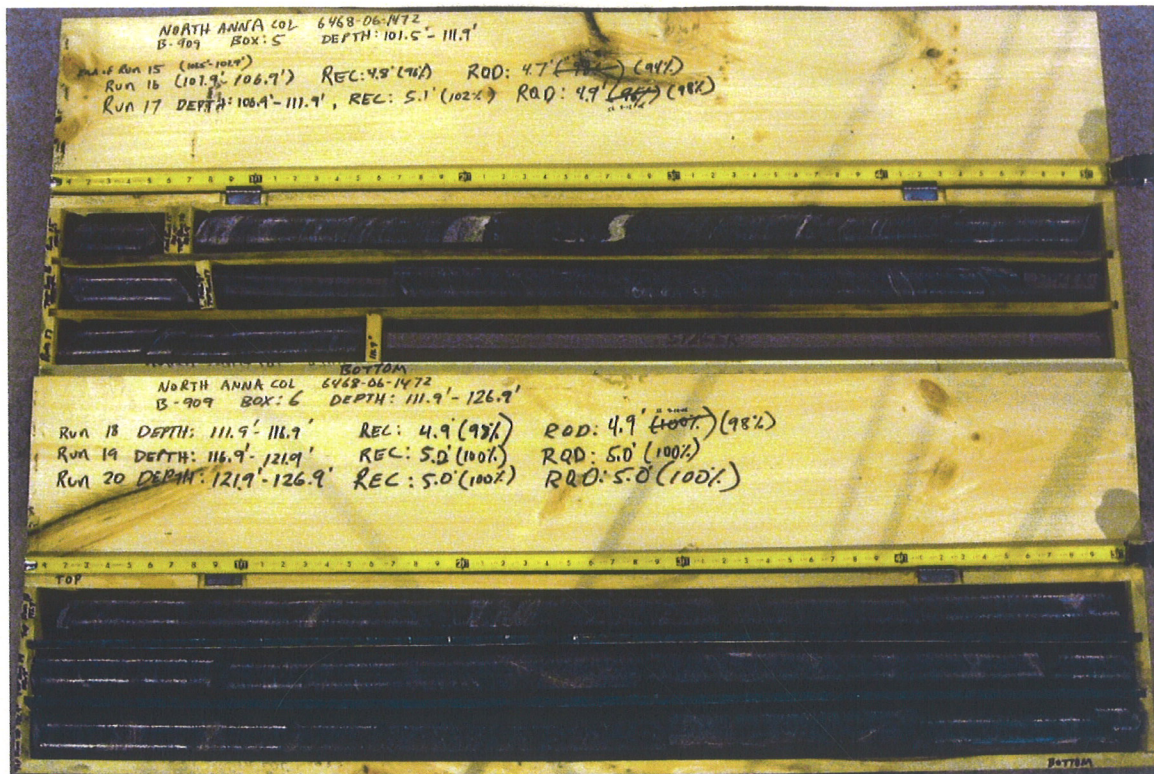 NORTH ANNA COL 6468-06-1472
B-909 BOX: 5 DEPTH: 101.5'-111.9'
of Run 15
Run 16 (101.9'-106.9') REC: 4.8' (96%) RQD: 4.7' (94%)
Run 17 DEPTH: 106.9'-111.9', REC: 5.1' (102%) RQD: 4.9' (98%)
111.9'
SPACER
BOTTOM
NORTH ANNA COL 6468-06-1472
B-909 BOX: 6 DEPTH: 111.9'-126.9'
Run 18 DEPTH: 111.9'-116.9' REC: 4.9' (98%) RQD: 4.9' (100%) (98%)
Run 19 DEPTH: 116.9'-121.9' REC: 5.0' (100%) RQD: 5.0' (100%)
Run 20 DEPTH: 121.9'-126.9' REC: 5.0' (100%) RQD: 5.0' (100%)
TOP
BOTTOM